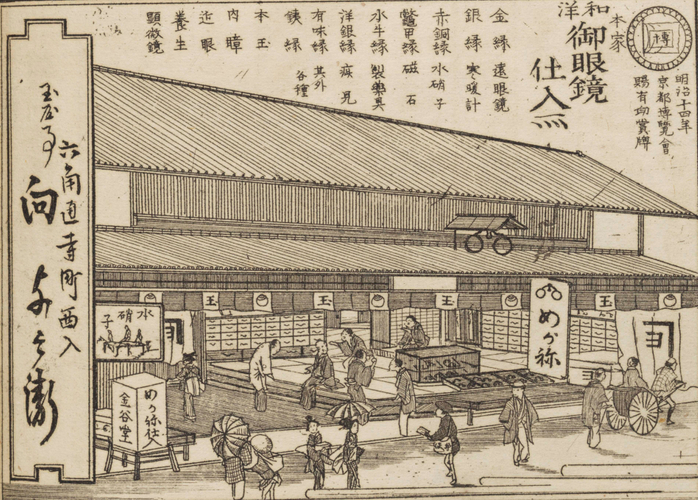 博
明治十四年
京都博覧會
賜有功賞牌
本家
和洋
御眼鏡
仕入所
金縁 遠眼鏡
銀縁 寒暖計
赤銅縁 水硝子
鼈甲縁 磁石
水牛縁 製藥具
洋銀縁 疾見
有味縁 其外
鐵縁 各種
本玉
内障
近眼
養生
顕微鏡
六角通寺町西入
玉屋事
向
玉
玉
玉
玉
水硝子
めが祢
ヨ
めがね仕
金谷堂